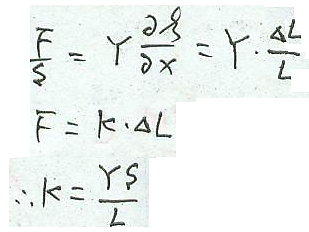 F/S = Y ∂ξ/∂x = Y · ΔL/L
F = K · ΔL
∴ K = YS/L